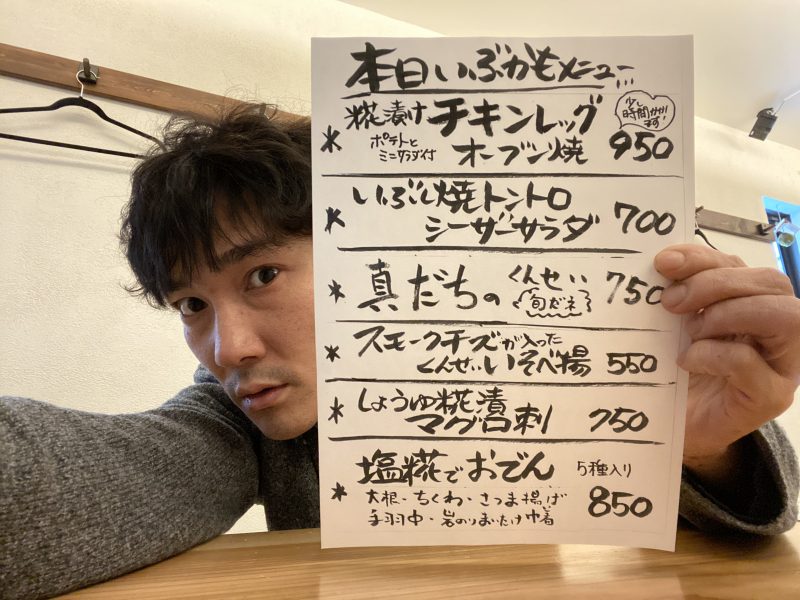 本日いぶかもメニュー
糀漬けチキンレッグ
少し
時間かかります!
ポテトと
ミニサラダ付
オーブン焼 950
いぶし焼トントロ
シーザーサラダ 700
真だちの くんせい 750
旬だネ
スモークチーズが入った
くんせいいそべ揚 550
しょうゆ糀漬
マグロ刺 750
塩糀でおでん 5種入り
大根・ちくわ・さつま揚げ 850
手羽中・岩のりまいたけ巾着